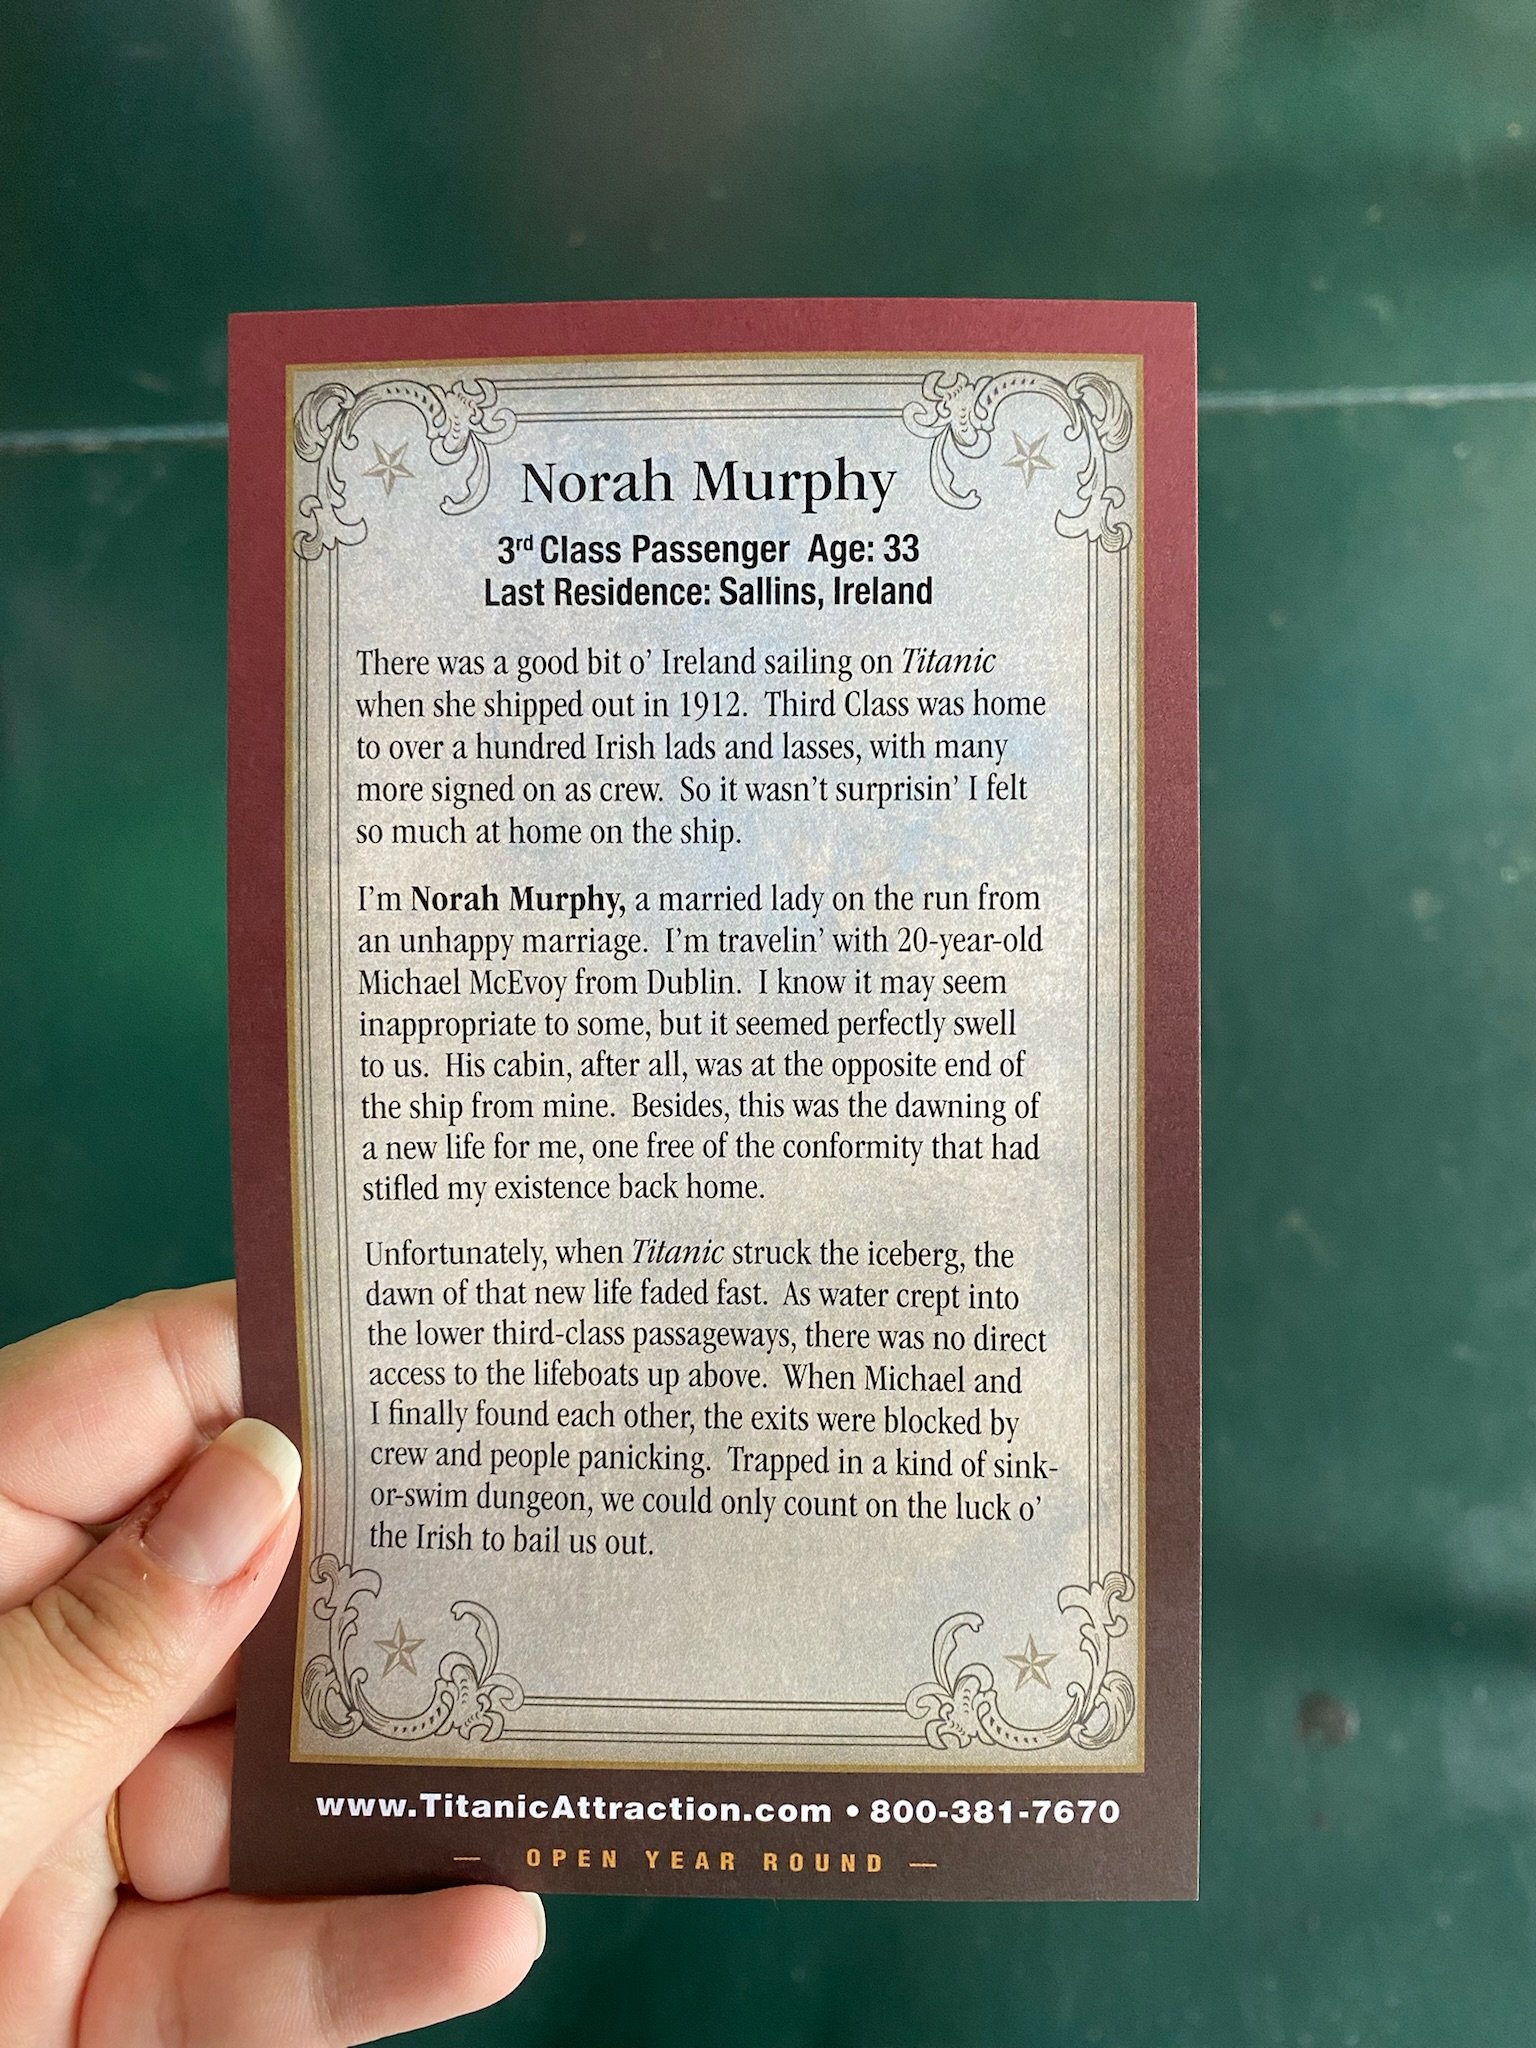 Norah Murphy
3rd Class Passenger Age: 33
Last Residence: Sallins, Ireland
There was a good bit o’ Ireland sailing on Titanic
when she shipped out in 1912. Third Class was home
to over a hundred Irish lads and lasses, with many
more signed on as crew. So it wasn’t surprisin’ I felt
so much at home on the ship.
I’m Norah Murphy, a married lady on the run from
an unhappy marriage. I’m travelin’ with 20-year-old
Michael McEvoy from Dublin. I know it may seem
inappropriate to some, but it seemed perfectly swell
to us. His cabin, after all, was at the opposite end of
the ship from mine. Besides, this was the dawning of
a new life for me, one free of the conformity that had
stifled my existence back home.
Unfortunately, when Titanic struck the iceberg, the
dawn of that new life faded fast. As water crept into
the lower third-class passageways, there was no direct
access to the lifeboats up above. When Michael and
I finally found each other, the exits were blocked by
crew and people panicking. Trapped in a kind of sink-
or-swim dungeon, we could only count on the luck o’
the Irish to bail us out.
www.TitanicAttraction.com • 800-381-7670
— OPEN YEAR ROUND —